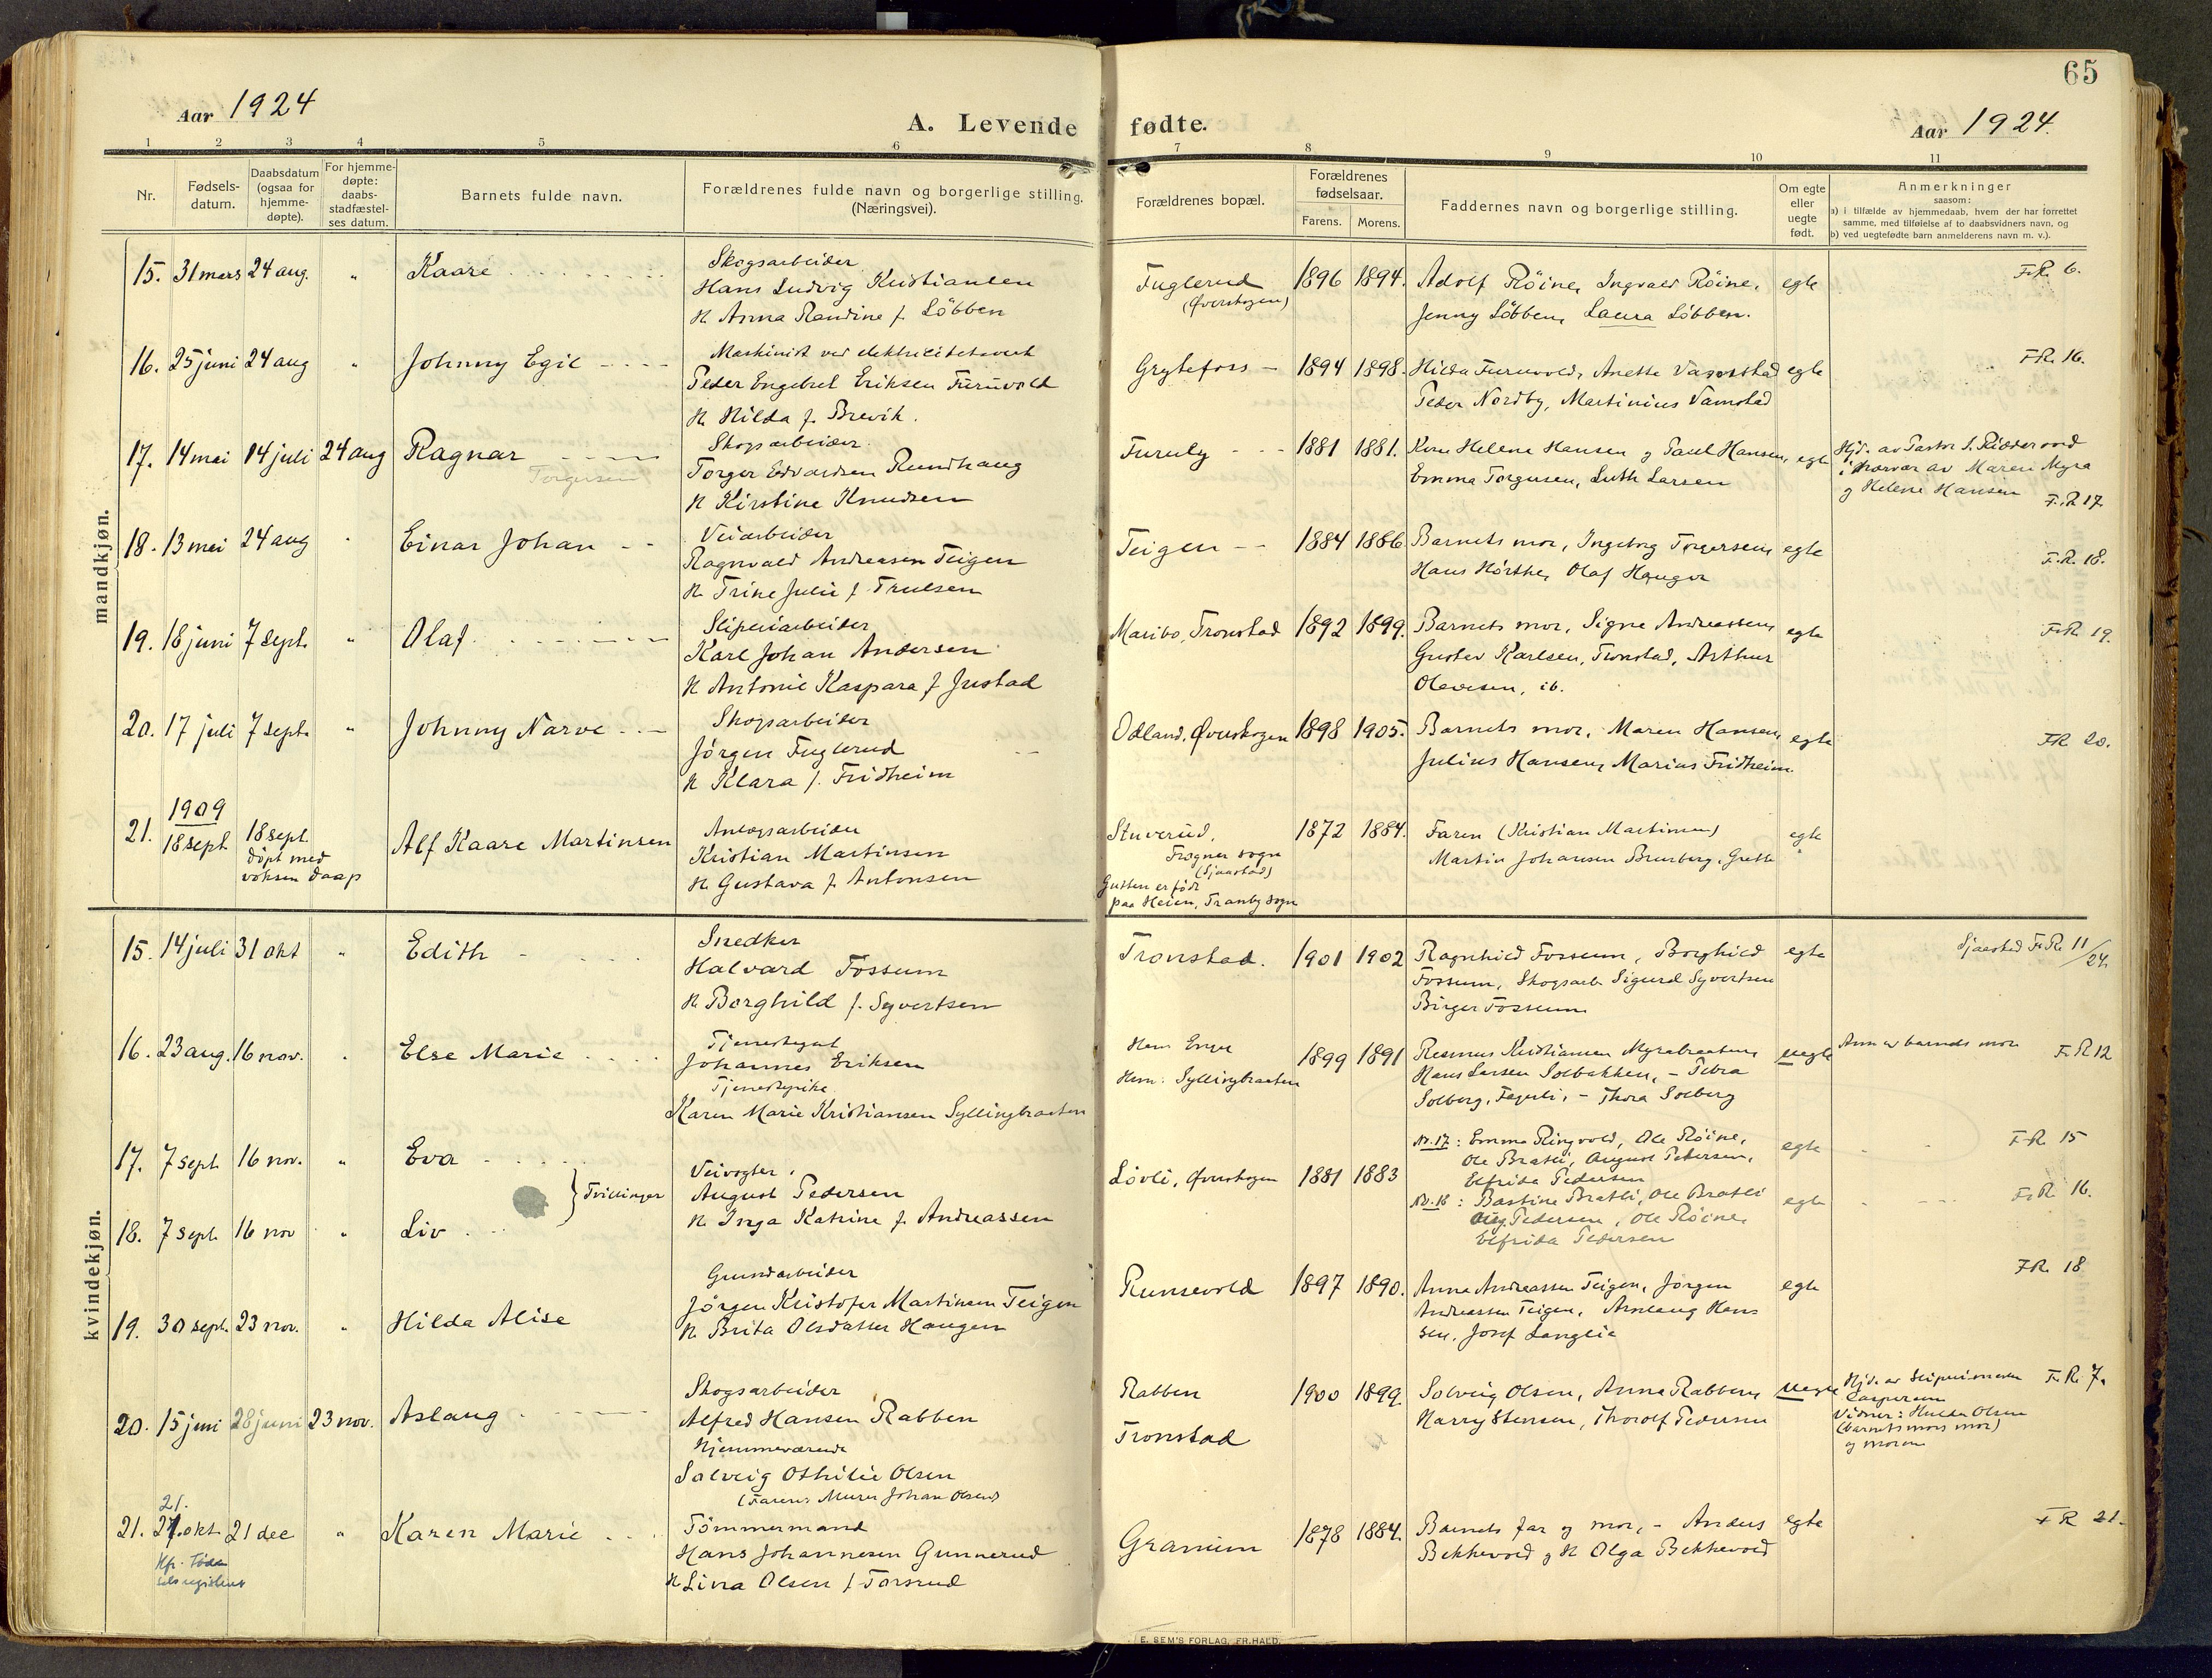 65
Aar 1924
A. Levende fødte.
Aar 1924.
1 2 3 4 5 6 7 8 9 10 11
Nr.
Fødsels-
datum.
Daabsdatum
(ogsaa for
hjemme-
døpte).
For hjemme-
døpte:
daabs-
stadfæstel-
ses datum.
Barnets fulde navn.
Forældrenes fulde navn og borgerlige stilling.
(Næringsvei).
Forældrenes bopæl.
Forældrenes
fødselsaar.
Farens. Morens.
Faddernes navn og borgerlige stilling.
Om egte
eller
uegte
født.
Anmerkninger
saasom:
a) i tilfælde av hjemmedaab, hvem der har forrettet
samme, med tilføielse af to daabsvidners navn, og
b) ved uegtefødte barn anmelderens navn m. v.).
mandkjøn.
15. 31 mars 24 aug. " Kaare
Skogsarbeider
Hans Ludvig Kristiansen
H. Anna Randine f. Löbben
Fuglerud
(Øverskogen)
1896 1894.
Adolf Röine, Ingvald Röine,
Jenny Löbben, Laura Löbben.
egte
F.R. 6.
16. 25 juni 24 aug " Johnny Egil
Maskinist ved elektricitetsverk
Peder Engebret Eriksen Furuvold
H. Hilda f. Brevik.
Grytefoss
1894 1898.
Hilda Furuvold, Anette
Peder Nordby, Martinius
egte
F.R. 16.
17. 14 mai 14 juli 24 aug Ragnar
Torgersen
Skogsarbeider.
Torger Edvardsen Rundhaug
H. Kirstine Knudsen
Furuly
1881 1881.
Helene Hansen og Paul Hansen,
Emma Torgersen, Luth Larsen
egte
Hjd. av Pastor S. Riddervold
i nærvær av Maren Myra
og Helene Hansen F.R 17.
18. 13 mai 24 aug " Einar Johan
Veiarbeider
Ragnvald Andreasen Teigen
H. Trine Julie f. Trulsen
Teigen
1884 1886
Barnets mor, Ingeborg Torgersen,
Hans Hörthe, Olaf Haugor
egte
F.R. 18.
19. 18 juni 7 sept. " Olaf
Sliperiarbeider
Karl Johan Andersen
H. Antonie Kaspara f. Justad
Maribo, Tronstad
1892 1899.
Barnets mor, Signe Andreassen,
Gustav Karlsen, Tronstad, Arthur
Olavesen, ib.
egte
F.R. 19.
20. 17 juli 7 sept. " Johnny Narve
Skogsarbeider
Jörgen Fuglerud
H. Klara f. Fridheim
Odland, Øverskogen
1898 1905.
Barnets mor, Maren Hansen,
Julius Hansen, Marius Fridheim.
egte
F.R 20.
1909
21. 18 sept 18 sept.
döpt med
voksen daap
Alf Kaare Martinsen
Anlægsarbeider
Kristian Martinsen
H. Gustava f. Antonsen
Stuverud,
Frogner sogn
(Sjaastad)
Gutten er född
paa Heien, Tranby sogn
1872 1884.
Faren (Kristian Martinsen)
Martin Johansen Brurberg, Grette
egte
kvindekjøn.
15. 14 juli 31 okt " Edith
Snedker
Halvard Fossum
H. Borghild f. Syvertsen
Tronstad.
1901 1902
Ragnhild Fossum, Borghild
Fossum, Skogsarb. Sigurd Syvertsen
Birger Fossum
egte
Sjaastad F.R. 11/24
16. 23 aug. 16 nov. " Else Marie
Tjenestegut
Johannes Eriksen
Tjenestepike
Karen Marie Kristiansen Syllingbraaten
Ham Enger
Hun: Syllingbraaten
1899 1891
Rasmus Kristiansen Myrebraaten,
Hans Larsen Solbakken, - Petra
Solberg, - Thora Solberg
uegte
Anm av barnets mor F.R 12
17. 7 sept 16 nov. " Eva
} Tvillinger
18. 7 sept. 16 nov " Liv
Veivogter.
August Pedersen
H. Inga Katrine f. Andreassen
Lövli, Øverskogen
1881 1883
Nr. 17: Emma Ringvold, Ole Röine,
Ole Bratli, August Pedersen,
Elfrida Pedersen
egte
F.R. 15
Nr. 18: Bastine Bratli, Ole Bratli
Aug. Pedersen, Ole Röine,
Elfrida Pedersen
egte
F.R. 16.
19. 30 sept. 23 nov. " Hilda Alise
Grundarbeider
Jörgen Kristofer Martinsen Teigen
H. Brita Olsdatter Haugen
Runsevold
1897 1890.
Anna Andreassen Teigen, Jörgen
Andreassen Teigen, Aanlaug Han-
sen, Josef Langlie
egte
F.R. 18
20. 15 juni 28 juni 23 nov. Aslaug
Skogsarbeider
Alfred Hansen Rabben
Hjemmeværende
Solveig Othilie Olsen
(Faren: Murer Johan Olsen)
Rabben
Tronstad
1900 1899.
Solveig Olsen, Anna Rabben,
Harry Stensen, Thorolf Pedersen
uegte
Hjd. av Sliperimester
Caspersen
Vidner: Hulda Olsen
(barnets mors mor)
og moren
F.R. 7.
21.
21. 27. okt 21 dec " Karen Marie
Kfr. Föd-
selsregisteret
Tömmermand
Hans Johannesen Gunnerud
H. Lina Olsen f. Forsrud
Granum
1878 1884.
Barnets far og mor, - Anders
Bekkevold og H. Olga Bekkevold
egte
F.R 21.
E. SEM'S FORLAG, FR.HALD.